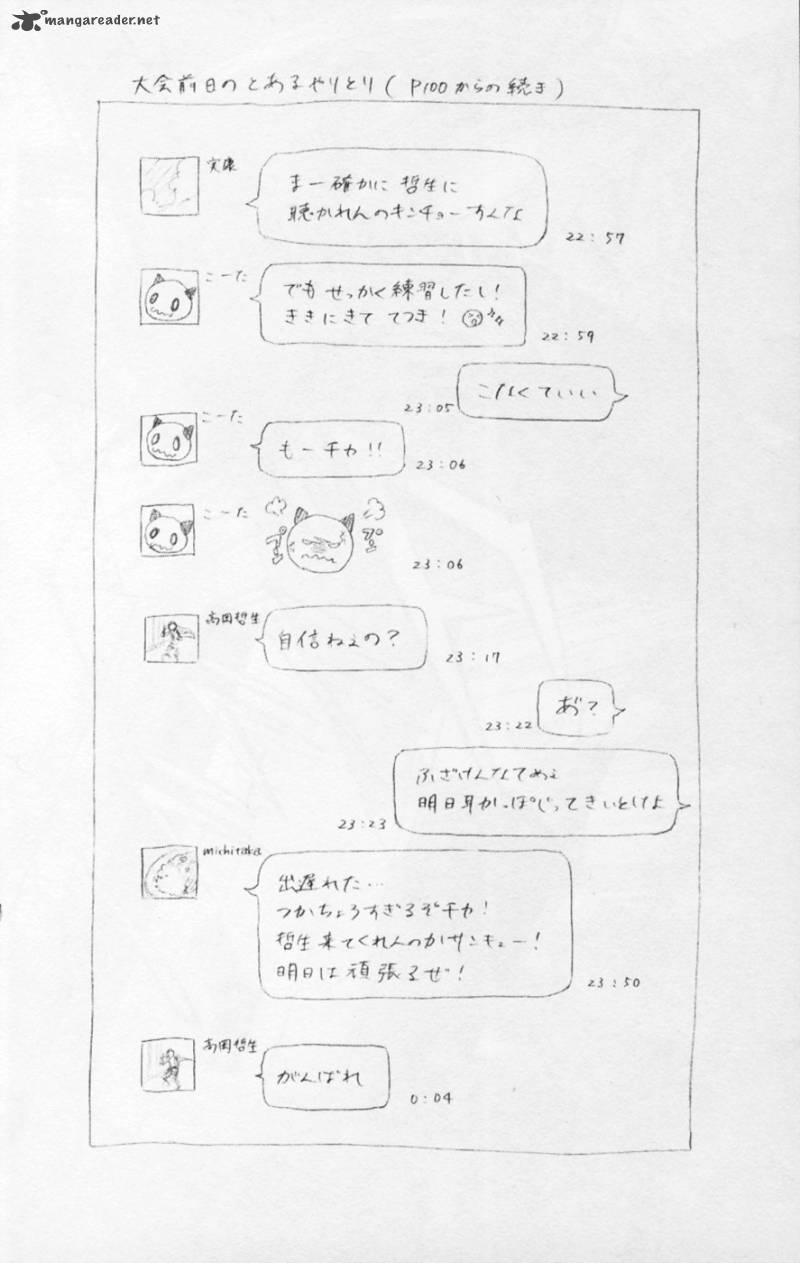 mangareader.net
大会前日のとあるやりとり(P100からの続き)
実康
まー確かに哲生に
聴かれんのキンチョーすんな
22:57
こーた
でもせっかく練習したし!
ききにきててつき!
22:59
こなくていい
23:05
こーた
もーチカ!!
23:06
こーた
プン
プン
23:06
高岡哲生
自信ねぇの?
23:17
あ゛?
23:22
ふざけんなてめぇ
明日耳かっぽじってきいとけよ
23:23
michitaka
出遅れた…
つかちょろすぎるぞチカ!
哲生来てくれんのかサンキュー!
明日は頑張るぜ!
23:50
高岡哲生
がんばれ
0:04